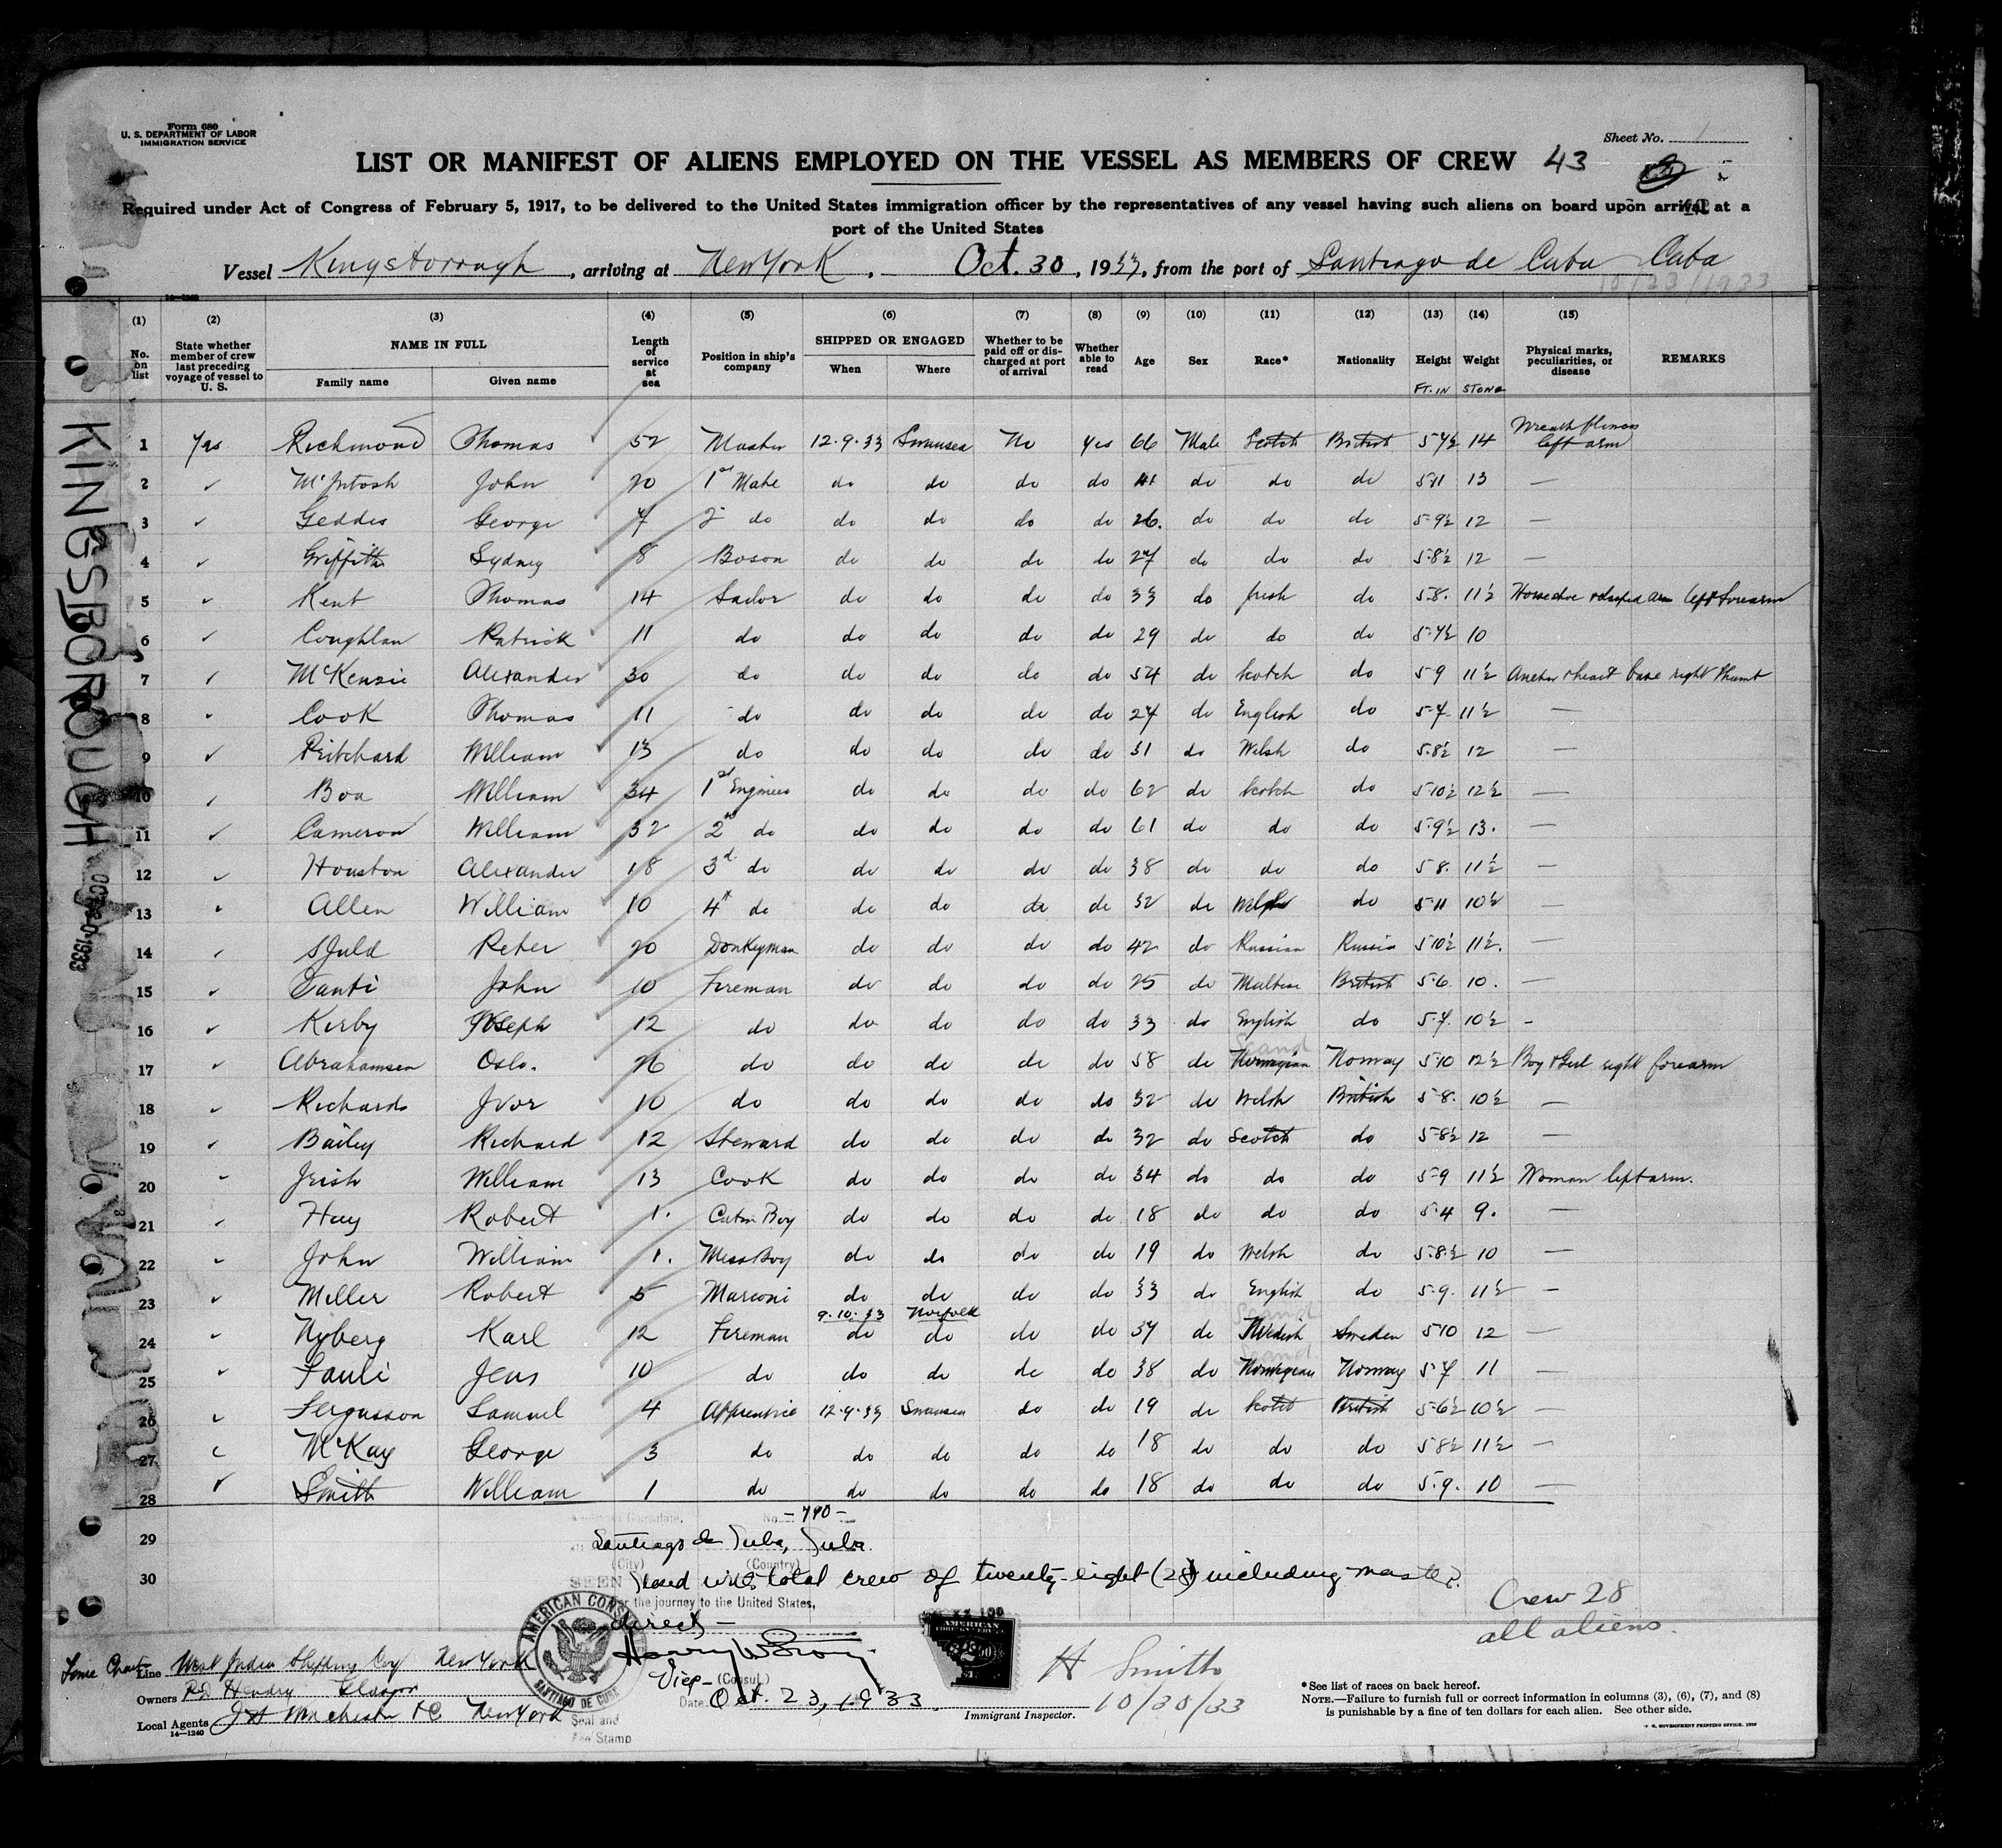 Form 680
U. S. DEPARTMENT OF LABOR
IMMIGRATION SERVICE
Sheet No. 1
LIST OR MANIFEST OF ALIENS EMPLOYED ON THE VESSEL AS MEMBERS OF CREW 43
Required under Act of Congress of February 5, 1917, to be delivered to the United States immigration officer by the representatives of any vessel having such aliens on board upon arrival at a
port of the United States
Vessel Kingsborough, arriving at New York, Oct. 30, 1933, from the port of Santiago de Cuba Cuba
10/23/1933
14-1240
(1) (2) (3) (4) (5) (6) (7) (8) (9) (10) (11) (12) (13) (14) (15)
No. on list
State whether member of crew last preceding voyage of vessel to U. S.
NAME IN FULL
Family name Given name
Length of service at sea
Position in ship's company
SHIPPED OR ENGAGED
When Where
Whether to be paid off or discharged at port of arrival
Whether able to read
Age
Sex
Race*
Nationality
Height FT. IN
Weight STONE
Physical marks, peculiarities, or disease
REMARKS
KINGSBOROUGH
1 Yes Richmond Thomas 52 Master 12.9.33 Swansea No Yes 66 Male Scotch British 5 7½ 14 left arm
2 ✓ McIntosh John 20 1st Mate do do do do 41 do do do 5 11 13 —
3 ✓ Geddes George 7 2 do do do do do 26. do do do 5-9½ 12 —
4 ✓ Griffith Sydney 8 Boson do do do do 27 do do do 5-8½ 12 —
5 ✓ Kent Thomas 14 Sailor do do do do 33 do Irish do 5-8. 11½ Horseshoe & clasped arm left forearm
6 ✓ Coughlan Patrick 11 do do do do do 29 do do do 5-7½ 10
7 ✓ McKenzie Alexander 30 do do do do do 54 do Scotch do 5 9 11½ Anchor & heart base right thumb
8 ✓ Cook Thomas 11 do do do do do 27 do English do 5-7 11½ —
9 ✓ Pritchard William 13 do do do do do 31 do Welsh do 5-8½ 12 —
10 ✓ Boa William 34 1st Engineer do do do do 62 do Scotch do 5 10½ 12½ —
11 ✓ Cameron William 32 2nd do do do do do 61 do do do 5-9½ 13. —
12 ✓ Houston Alexander 18 3d do do do do do 38 do do do 5 8. 11½ —
13 ✓ Allen William 10 4th do do do do do 32 do Welsh do 5-11 10½ —
14 ✓ Sjuld Peter 20 Donkeyman do do do do 42 do Russian Russia 5 10½ 11½. —
15 ✓ Tanti John 10 Fireman do do do do 25 do Maltese British 5-6. 10. —
16 ✓ Kerby Joseph 12 do do do do do 33 do English do 5-7. 10½ -
Scand
17 ✓ Abrahamsen Oslo. 26 do do do do do 58 do Norwegian Norway 5-10 12½ Boy & Girl right forearm
18 ✓ Richards Ivor 10 do do do do do 32 do Welsh British 5-8. 10½ —
19 ✓ Bailey Richard 12 Steward do do do do 32 do Scotch do 5-8½ 12 —
20 ✓ Irish William 13 Cook do do do do 34 do do do 5-9 11½ Woman left arm.
21 ✓ Hay Robert 1. Cabin Boy do do do do 18 do do do 5-4 9. —
22 ✓ John William 1. Mess Boy do do do do 19 do Welsh do 5-8½ 10 —
23 ✓ Miller Robert 5 Marconi do do do do 33 do English do 5-9. 11½ —
9.10.33 Norfolk Scand
24 ✓ Nyberg Karl 12 Fireman do do do do 37 do Swedish Sweden 5-10 12 —
Scand
25 ✓ Pauli Jens 10 do do do do do 38 do Norwegian Norway 5-7 11 —
26 ✓ Fergusson Samuel 4 Apprentice 12.9.33 Swansea do do 19 do Scotch British 5-6½ 10½ —
27 ✓ McKay George 3 do do do do do 18 do do do 5 8½ 11½ —
28 ✓ Smith William 1 do do do do do 18 do do do 5-9. 10 —
No. -790-
29 Santiago de Cuba, Cuba.
(City) (Country)
30 SEEN and with total crew of twenty-eight (28) including master.
For the journey to the United States,
direct —
Crew 28
all aliens.
AMERICAN CONSULATE
SANTIAGO DE CUBA
Vice- (Consul.)
Date Oct. 23, 1933.
Seal and
Fee Stamp
H Smith
Immigrant Inspector. 10/30/33
Time Chart Line West India Shipping Coy New York
Owners R D Hendry Glasgow
Local Agents J H Winchester & C New York
14-1240
*See list of races on back hereof.
NOTE.—Failure to furnish full or correct information in columns (3), (6), (7), and (8)
is punishable by a fine of ten dollars for each alien. See other side.
U. S. GOVERNMENT PRINTING OFFICE